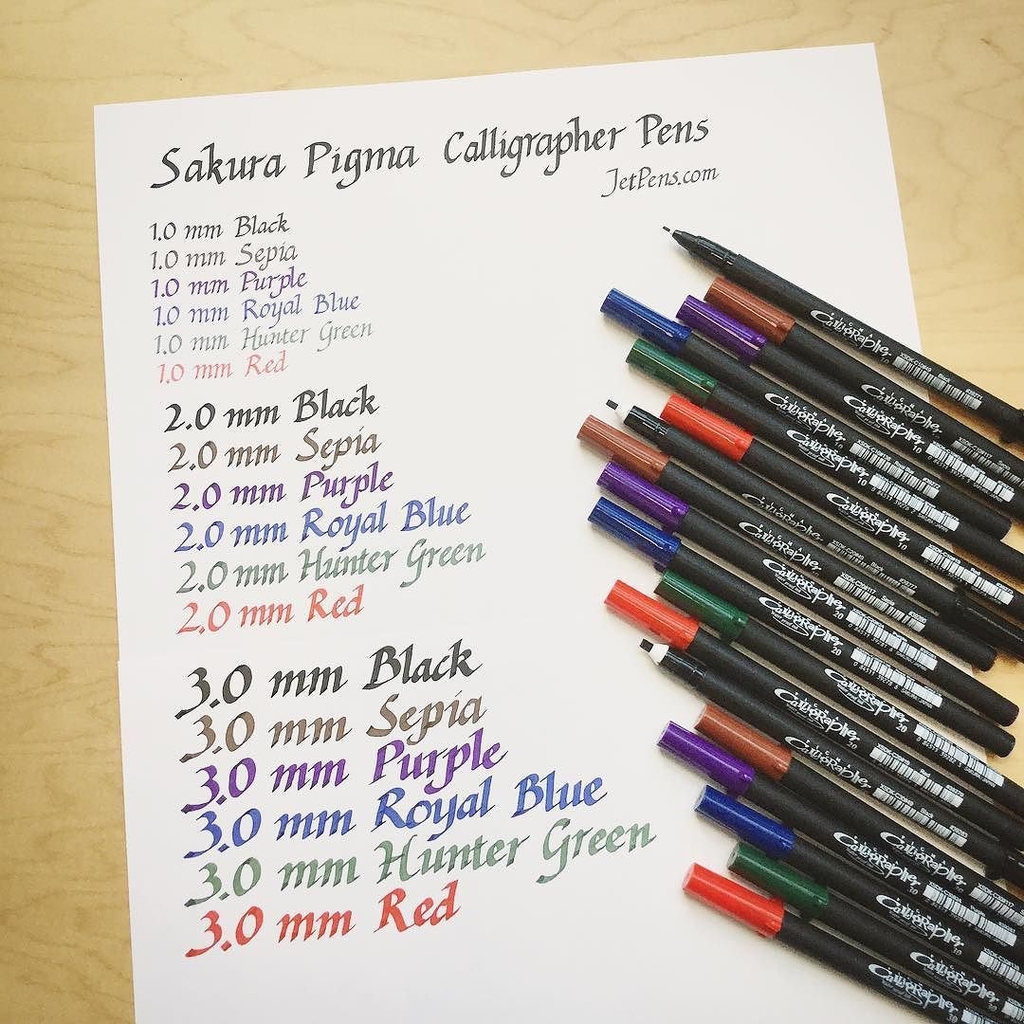 Sakura Pigma Calligrapher Pens
JetPens.com
1.0 mm Black
1.0 mm Sepia
1.0 mm Purple
1.0 mm Royal Blue
1.0 mm Hunter Green
1.0 mm Red
2.0 mm Black
2.0 mm Sepia
2.0 mm Purple
2.0 mm Royal Blue
2.0 mm Hunter Green
2.0 mm Red
3.0 mm Black
3.0 mm Sepia
3.0 mm Purple
3.0 mm Royal Blue
3.0 mm Hunter Green
3.0 mm Red
Calligrapher 10
Calligrapher
Calligrapher
Calligrapher 10
Calligrapher 10
Calligrapher 10
Calligrapher
Calligrapher
Calligrapher 20
Calligrapher 20
Calligrapher 20
Calligrapher 20
Calligrapher 30
Calligrapher
Calligrapher
Calligrapher 30
Calligrapher
Calligrapher